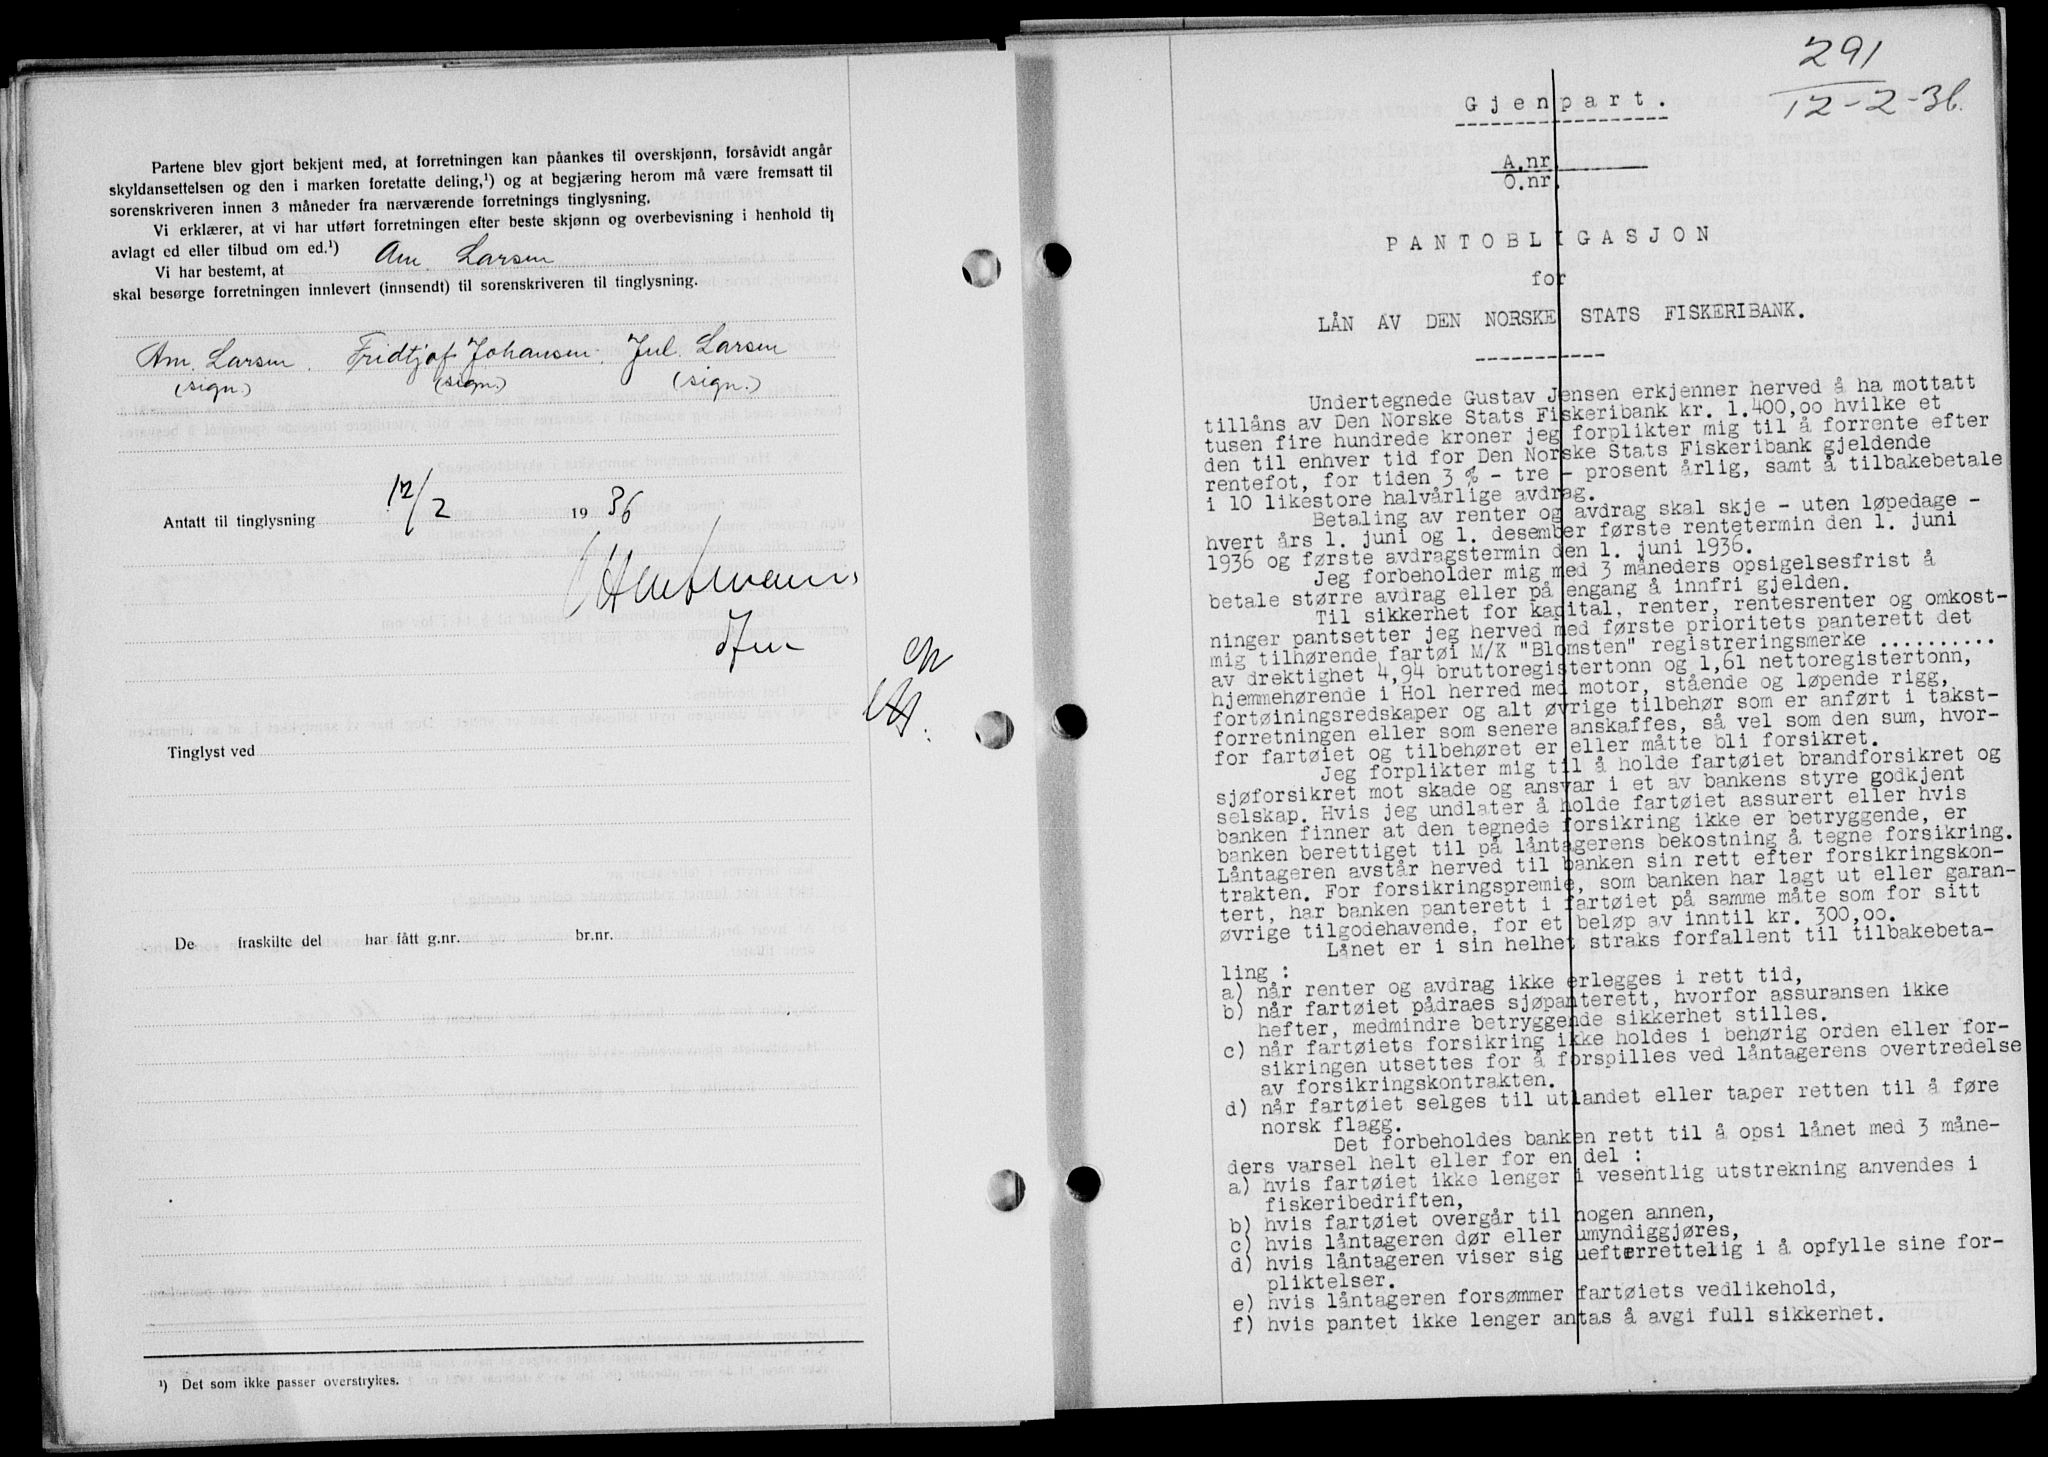 Partene blev gjort bekjent med, at forretningen kan påankes til overskjønn, forsåvidt angår
skyldansettelsen og den i marken foretatte deling,¹) og at begjæring herom må være fremsatt til
sorenskriveren innen 3 måneder fra nærværende forretnings tinglysning.
Vi erklærer, at vi har utført forretningen efter beste skjønn og overbevisning i henhold til
avlagt ed eller tilbud om ed.¹)
Vi har bestemt, at Am. Larsen
skal besørge forretningen innlevert (innsendt) til sorenskriveren til tinglysning.
Am. Larsen. Fridtjof Johansen. Jul. Larsen
(sign.) (sign.) (sign.)
Antatt til tinglysning 12/2 1936
Tinglyst ved
De fraskilte del har fått g.nr. br.nr.
¹) Det som ikke passer overstrykes.
291
12-2-36.
Gjenpart.
A.nr.
O.nr.
PANTOBLIGASJON
for
LÅN AV DEN NORSKE STATS FISKERIBANK.
Undertegnede Gustav Jensen erkjenner herved å ha mottatt
tillåns av Den Norske Stats Fiskeribank kr. 1.400,00 hvilke et
tusen fire hundrede kroner jeg forplikter mig til å forrente efter
den til enhver tid for Den Norske Stats Fiskeribank gjeldende
rentefot, for tiden 3 % - tre - prosent årlig, samt å tilbakebetale
i 10 likestore halvårlige avdrag.
Betaling av renter og avdrag skal skje - uten løpedage -
hvert års 1. juni og 1. desember første rentetermin den 1. juni
1936 og første avdragstermin den 1. juni 1936.
Jeg forbeholder mig med 3 måneders opsigelsesfrist å
betale større avdrag eller på engang å innfri gjelden.
Til sikkerhet for kapital, renter, rentesrenter og omkost-
ninger pantsetter jeg herved med første prioritets panterett det
mig tilhørende fartøi M/K "Blomsten" registreringsmerke ..........
av drektighet 4,94 bruttoregistertonn og 1,61 nettoregistertonn,
hjemmehørende i Hol herred med motor, stående og løpende rigg,
fortøiningsredskaper og alt øvrige tilbehør som er anført i takst-
forretningen eller som senere anskaffes, så vel som den sum, hvor-
for fartøiet og tilbehøret er eller måtte bli forsikret.
Jeg forplikter mig til å holde fartøiet brandforsikret og
sjøforsikret mot skade og ansvar i et av bankens styre godkjent
selskap. Hvis jeg undlater å holde fartøiet assurert eller hvis
banken finner at den tegnede forsikring ikke er betryggende, er
banken berettiget til på låntagerens bekostning å tegne forsikring.
Låntageren avstår herved til banken sin rett efter forsikringskon-
trakten. For forsikringspremie, som banken har lagt ut eller garan-
tert, har banken panterett i fartøiet på samme måte som for sitt
øvrige tilgodehavende, for et beløp av inntil kr. 300,00.
Lånet er i sin helhet straks forfallent til tilbakebeta-
ling :
a) når renter og avdrag ikke erlegges i rett tid,
b) når fartøiet pådraes sjøpanterett, hvorfor assuransen ikke
hefter, medmindre betryggende sikkerhet stilles.
c) når fartøiets forsikring ikke holdes i behørig orden eller for-
sikringen utsettes for å forspilles ved låntagerens overtredelse
av forsikringskontrakten.
d) når fartøiet selges til utlandet eller taper retten til å føre
norsk flagg.
Det forbeholdes banken rett til å opsi lånet med 3 måne-
ders varsel helt eller for en del :
a) hvis fartøiet ikke lenger i vesentlig utstrekning anvendes i
fiskeribedriften,
b) hvis fartøiet overgår til nogen annen,
c) hvis låntageren dør eller umyndiggjøres,
d) hvis låntageren viser sig uefterrettelig i å opfylle sine for-
pliktelser.
e) hvis låntageren forsømmer fartøiets vedlikehold,
f) hvis pantet ikke lenger antas å avgi full sikkerhet.